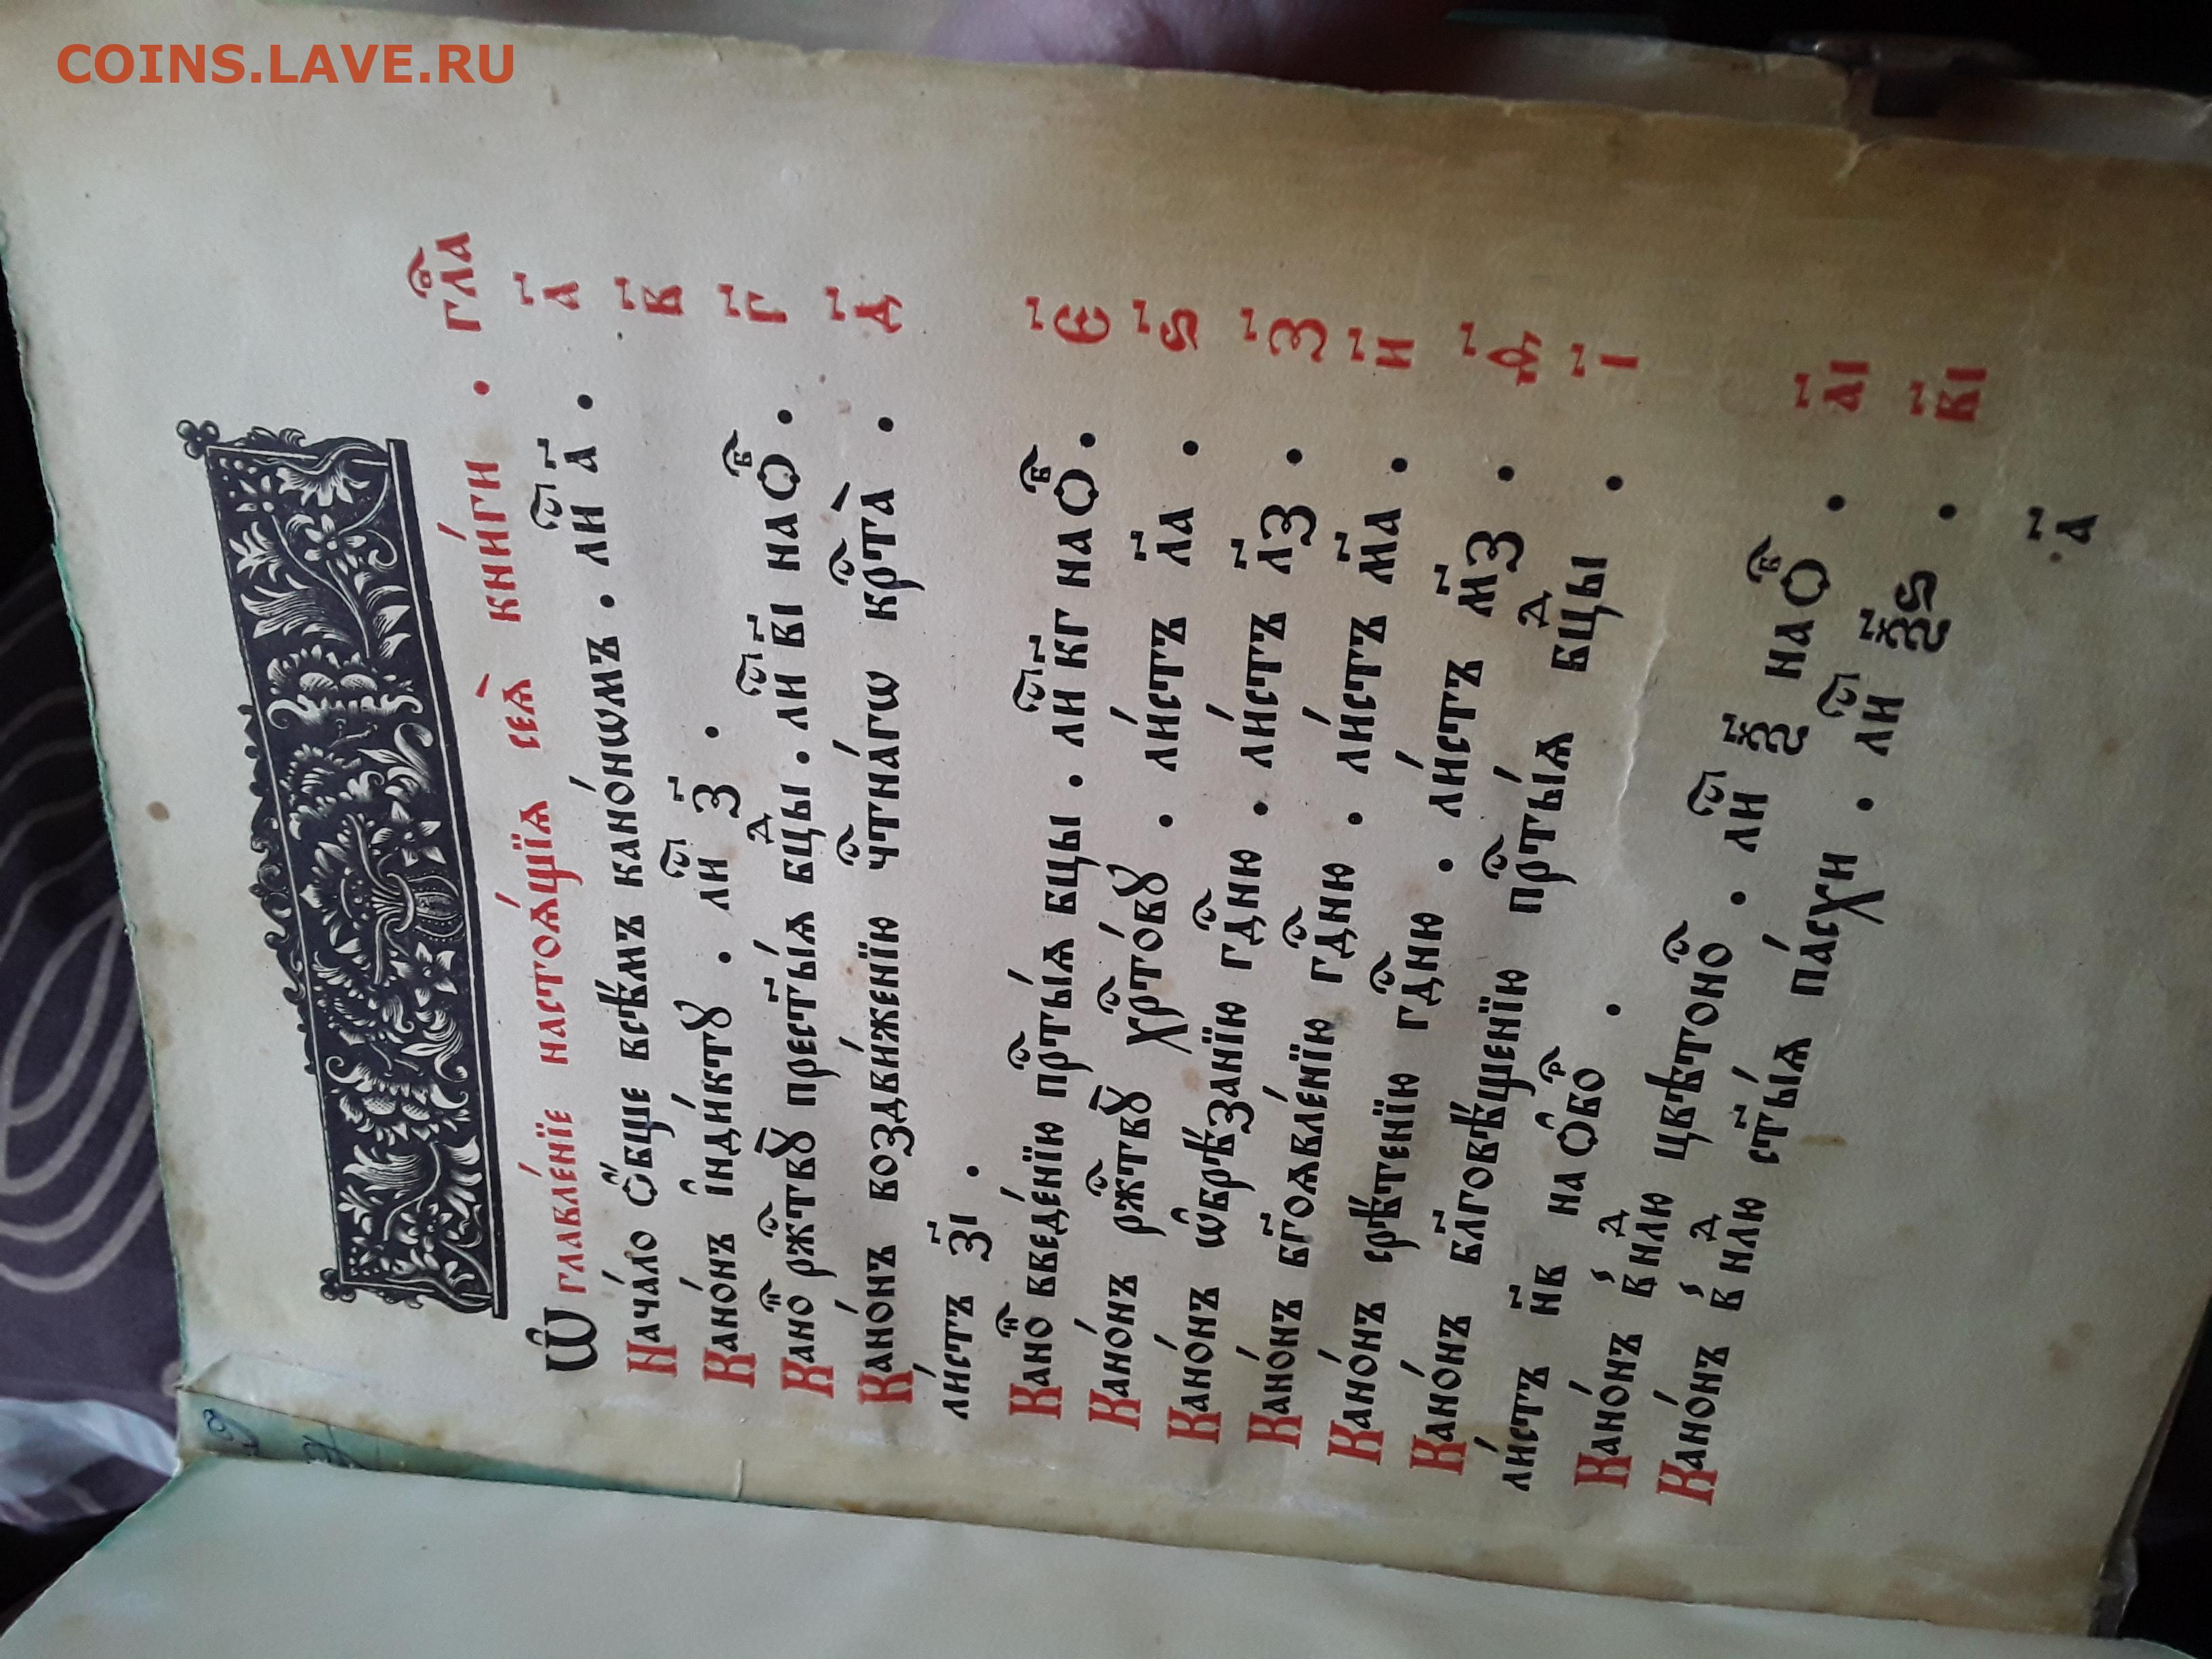 COINS.LAVE.RU
Ѡ҆главле́нїе настоѧ́щїѧ сеѧ̀ кни́ги . гла҃в
Нача́ло ѻ҆́бще всѣ́мъ кано́нѡмъ . ли́ст а҃ . а҃
Кано́нъ і҆нди́ктꙋ . ли́ст з҃ . в҃
Кано́н ржⷭ҇твꙋ̀ прест҃ы́ѧ бцⷣы . ли́ст в҃і на ѻ҆б . г҃
Кано́нъ воздви́женїю чⷭ҇тна́гѡ крⷭ҇та̀ . д҃
ли́стъ з҃і .
Кано́н введе́нїю прⷭ҇ты́ѧ бцы . ли́ст к҃г на ѻ҆б . є҃
Кано́нъ ржⷭ҇твꙋ̀ хрⷭ҇то́вꙋ . ли́стъ л҃а . ѕ҃
Кано́нъ ѡ҆брѣ́занїю гдⷭ҇ню . ли́стъ л҃з . з҃
Кано́нъ бг҃оѧвле́нїю гдⷭ҇ню . ли́стъ м҃а . и҃
Кано́нъ срѣ́тенїю гдⷭ҇ню . ли́стъ м҃з . ѳ҃
Кано́нъ бл҃говѣ́щенїю прⷭ҇ты́ѧ бцⷣы . і҃
ли́стъ н҃в на ѻ҆боро .
Кано́нъ в̾ нлⷣю цвѣтоно́с . ли́ст ѯ҃ на ѻ҆б . а҃і
Кано́нъ в̾ нлⷣю ст҃ы́ѧ па́схи . ли́ст ѯ҃ѕ . в҃і
а҃